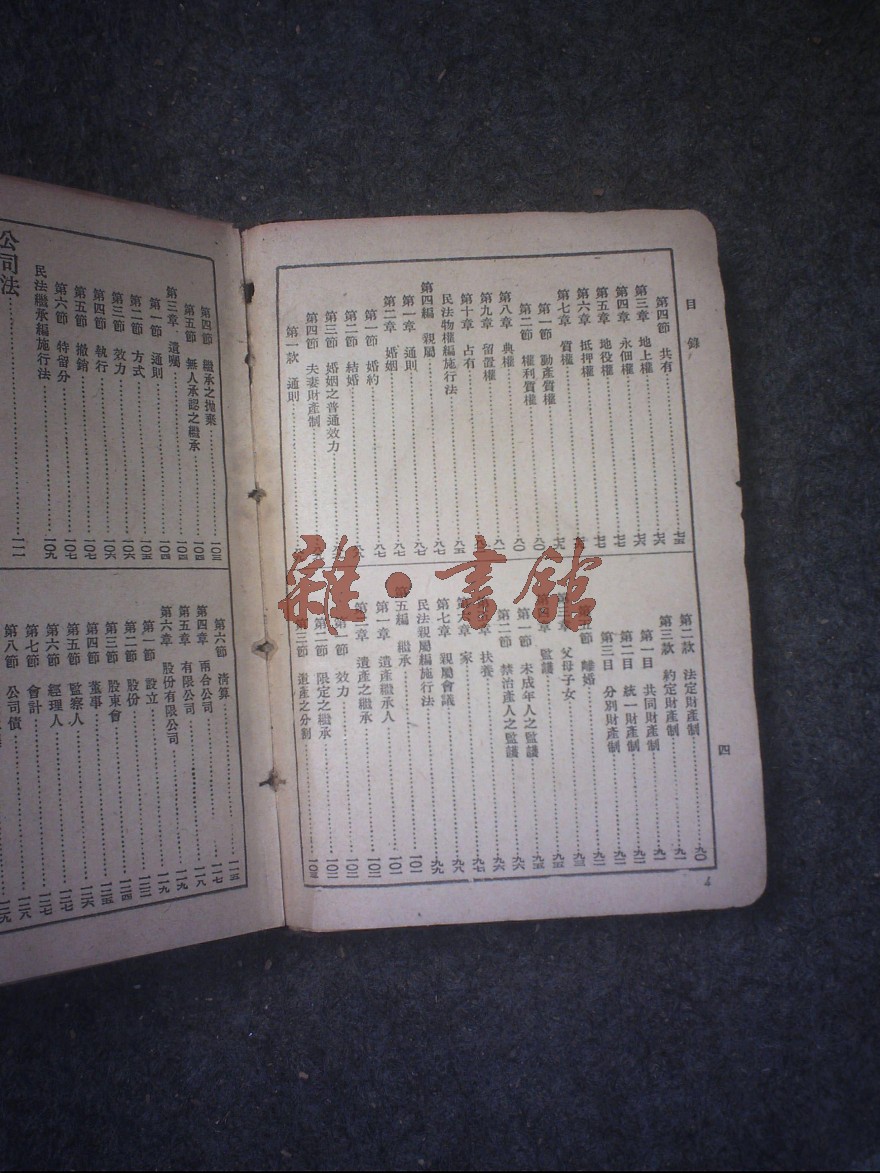 目錄
四
第四節 共有……七五
第三章 地上權……七六
第四章 永佃權……七六
第五章 地役權……七七
第六章 抵押權……七七
第七章 質權……七九
第一節 動產質權……七九
第二節 權利質權……八〇
第八章 典權……八一
第九章 留置權
第十章 占有
民法物權編施行法……八五
第四編 親屬……八七
第一章 通則……八七
第二章 婚姻……八七
第一節 婚約……八七
第二節 結婚
第三節 婚姻之普通效力
第四節 夫妻財產制
第一款 通則
第二款 法定財產制……九〇
第三款 約定財產制……九一
第一目 共同財產制……九一
第二目 統一財產制……九二
第三目 分別財產制……九二
離婚
父母子女
監護……九五
第一節 未成年人之監護……九五
第二節 禁治產人之監護……九六
扶養……九七
家……九八
第七章 親屬會議……九八
民法親屬編施行法……九九
第五編 繼承……一〇一
第一章 遺產繼承人……一〇一
遺產之繼承……一〇二
效力……一〇二
第二節 限定之繼承……一〇二
第三節 遺產之分割……一〇三
第四節 繼承之拋棄……一〇三
第五節 無人承認之繼承……一〇四
第三章 遺囑……一〇四
第一節 通則……一〇四
第二節 方式……一〇五
第三節 效力……一〇六
第四節 執行……一〇六
第五節 撤銷……一〇七
第六節 特留分……一〇七
民法繼承編施行法……一〇九
公司法……一一一
第六節 清算……一一五
第四章 兩合公司……一一七
第五章 有限公司……一一八
第六章 股份有限公司……一一九
第一節 設立……一一九
第二節 股份……一二二
第三節 股東會……一二四
第四節 董事……一二五
第五節 監察人……一二六
第六節 經理人……一二七
第七節 會計……一二七
第八節 公司債……一二八
雜·書館